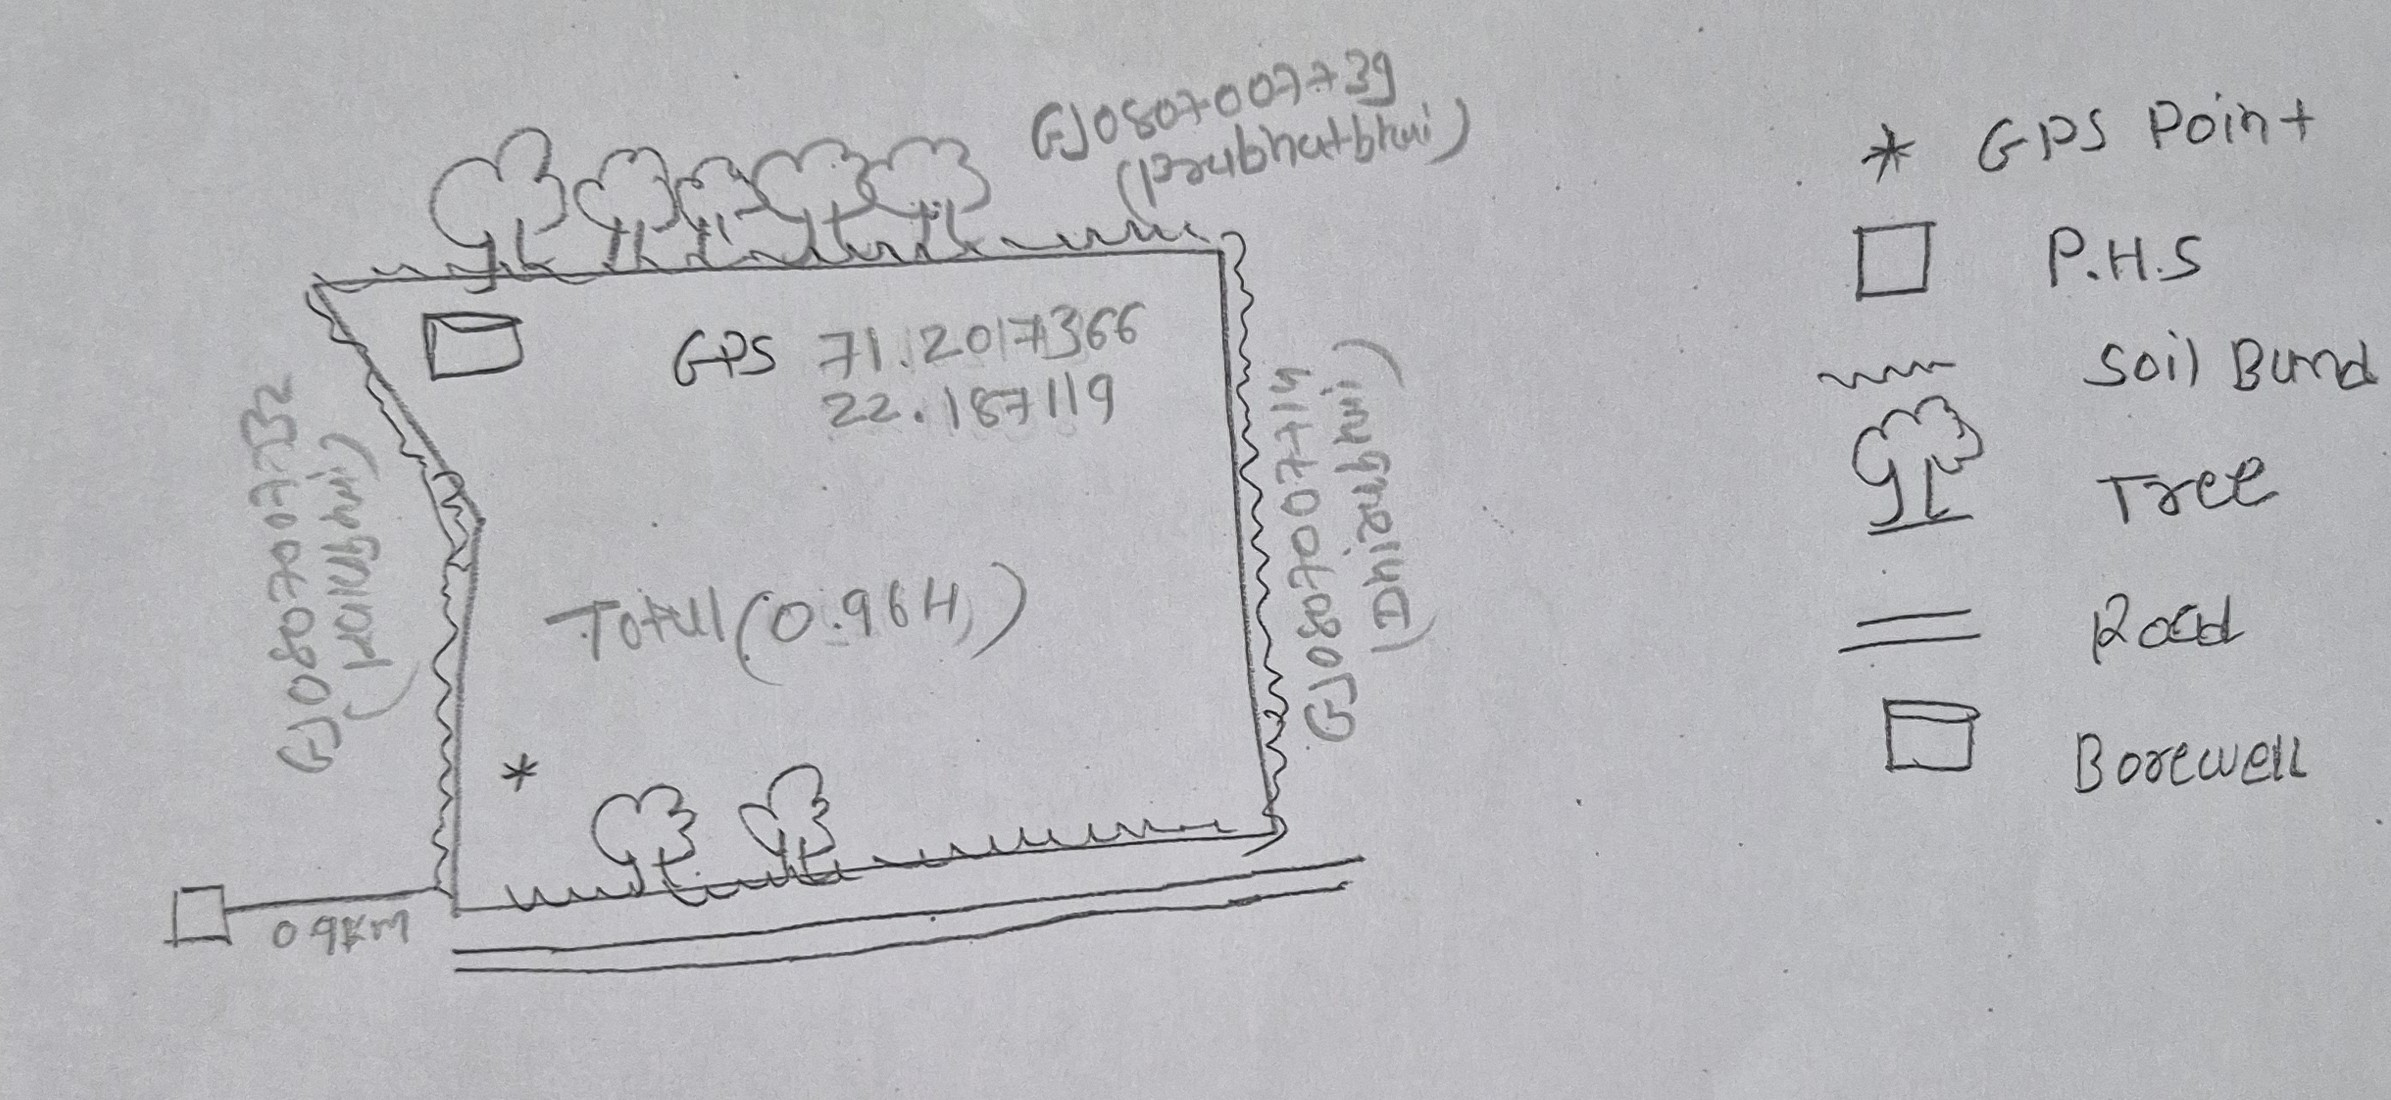 GJ0807007739
(Prabhatbhai)
GPS 71.2017366
22.187119
GJ0807007732
(Kalubhai)
GJ0807007714
(Dhirubhai)
Total (0.96H)
0.9KM
GPS Point
P.H.S
Soil Bund
Tree
Road
Borewell